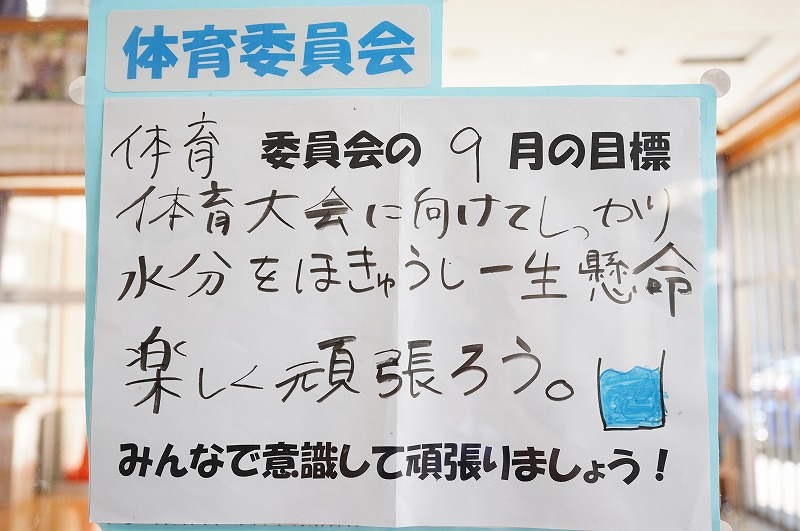 体育委員会
体育 委員会の 9 月の目標
体育大会に向けてしっかり
水分をほきゅうし一生懸命
楽しく頑張ろう。
みんなで意識して頑張りましょう！